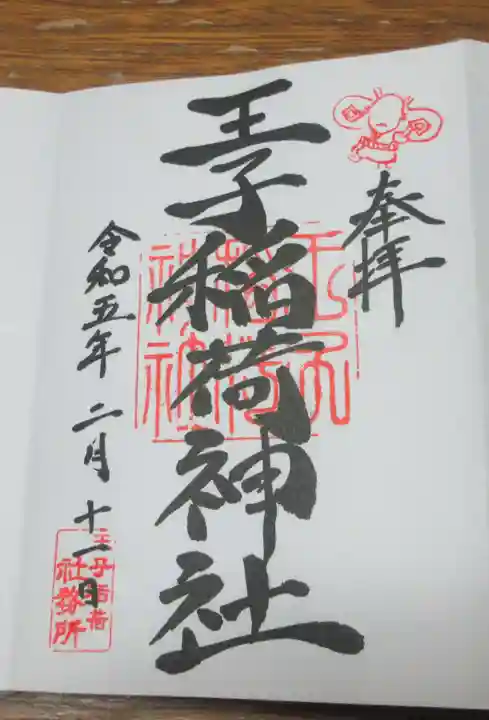 奉拝
王子稲荷神社
令和五年 二月 十一日
王子稲荷
社務所